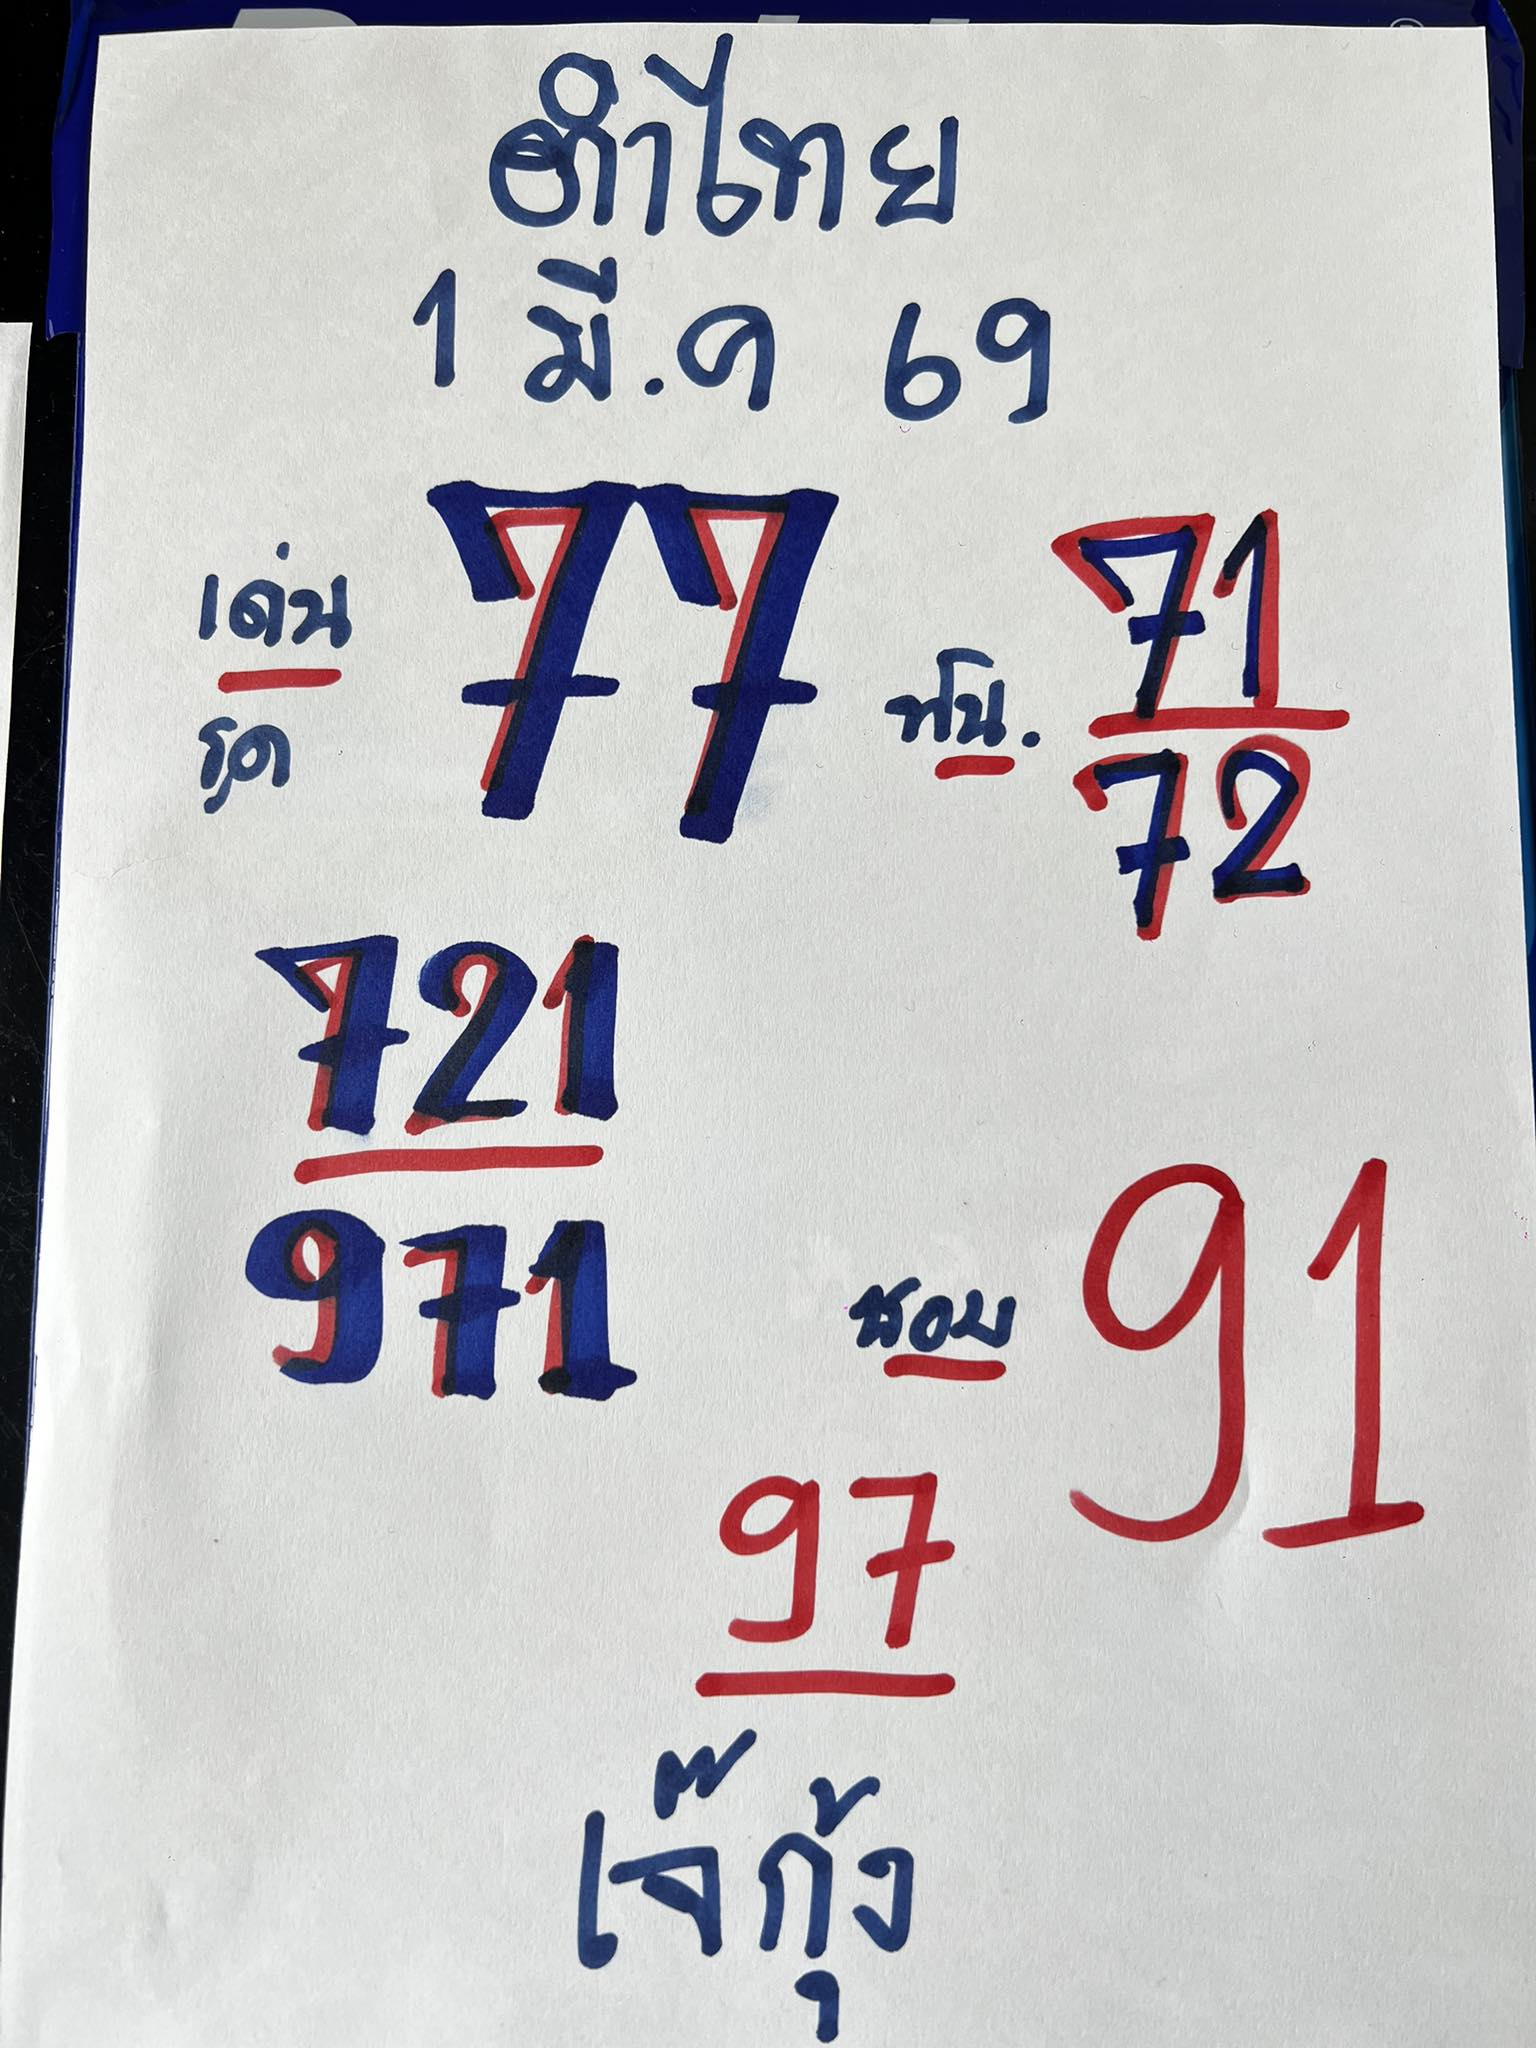 ฮำไทย
1 มี.ค 69
เด่น 77
รูด
ฟัน. 71
72
721
971
ชอบ 91
97
เจ๊กุ้ง